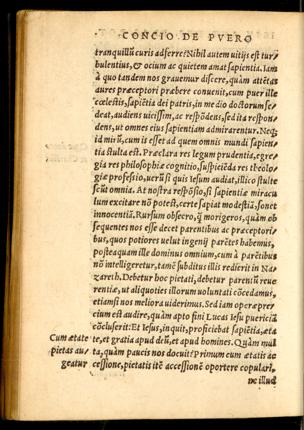 CONCIO DE PVERO
tranquillũ curis adferre? Nihil autem uitijs est tur
bulentius, & ocium ac quietem amat sapientia. Iam
à quo tandem nos grauemur discere, quàm attẽtas
aures præceptori præbere conuenit, cum puer ille
cœlestis, sapiẽtia dei patris, in medio doctorum se
deat, audiens uicissim, ac respõdens, sed ita respon
dens, ut omnes eius sapientiam admirarentur. Neq;
id mirũ, cum is esset ad quem omnis mundi sapien
tia stulta est. Præclara res legum prudentia, egre
gia res philosophiæ cognitio, suspiciẽda res theolo
giæ professio, uerũ si quis Iesum audiat, illico stulte
scũt omnia. At nostra respõsio, si sapientiæ miracu
lum excitare nõ potest, certe sapiat modestiã, sonet
innocentiã. Rursum obsecro, q̃ morigeros, quàm ob
sequentes nos esse decet parentibus ac præceptori
bus, quos potiores uelut ingenij parẽtes habemus,
posteaquam ille dominus omnium, cum à parẽtibus
nõ intelligeretur, tamẽ subditus illis redierit in Na
zareth. Debetur hoc pietati, debetur parentũ reue
rentiæ, ut aliquoties illorum uoluntati cõcedamus,
etiamsi nos meliora uiderimus. Sed iam operæ pre
cium est audire, quàm apto fini Lucas Iesu puericiã
cõcluserit: Et Iesus, inquit, proficiebat sapiẽtia, æta
te, et gratia apud deũ, et apud homines. Quàm mul
ta, quàm paucis nos docuit? Primum cum ætatis ac
cessione, pietatis itẽ accessionẽ oportere copulari,
ne illud
Cum ætate
pietas au
geatur